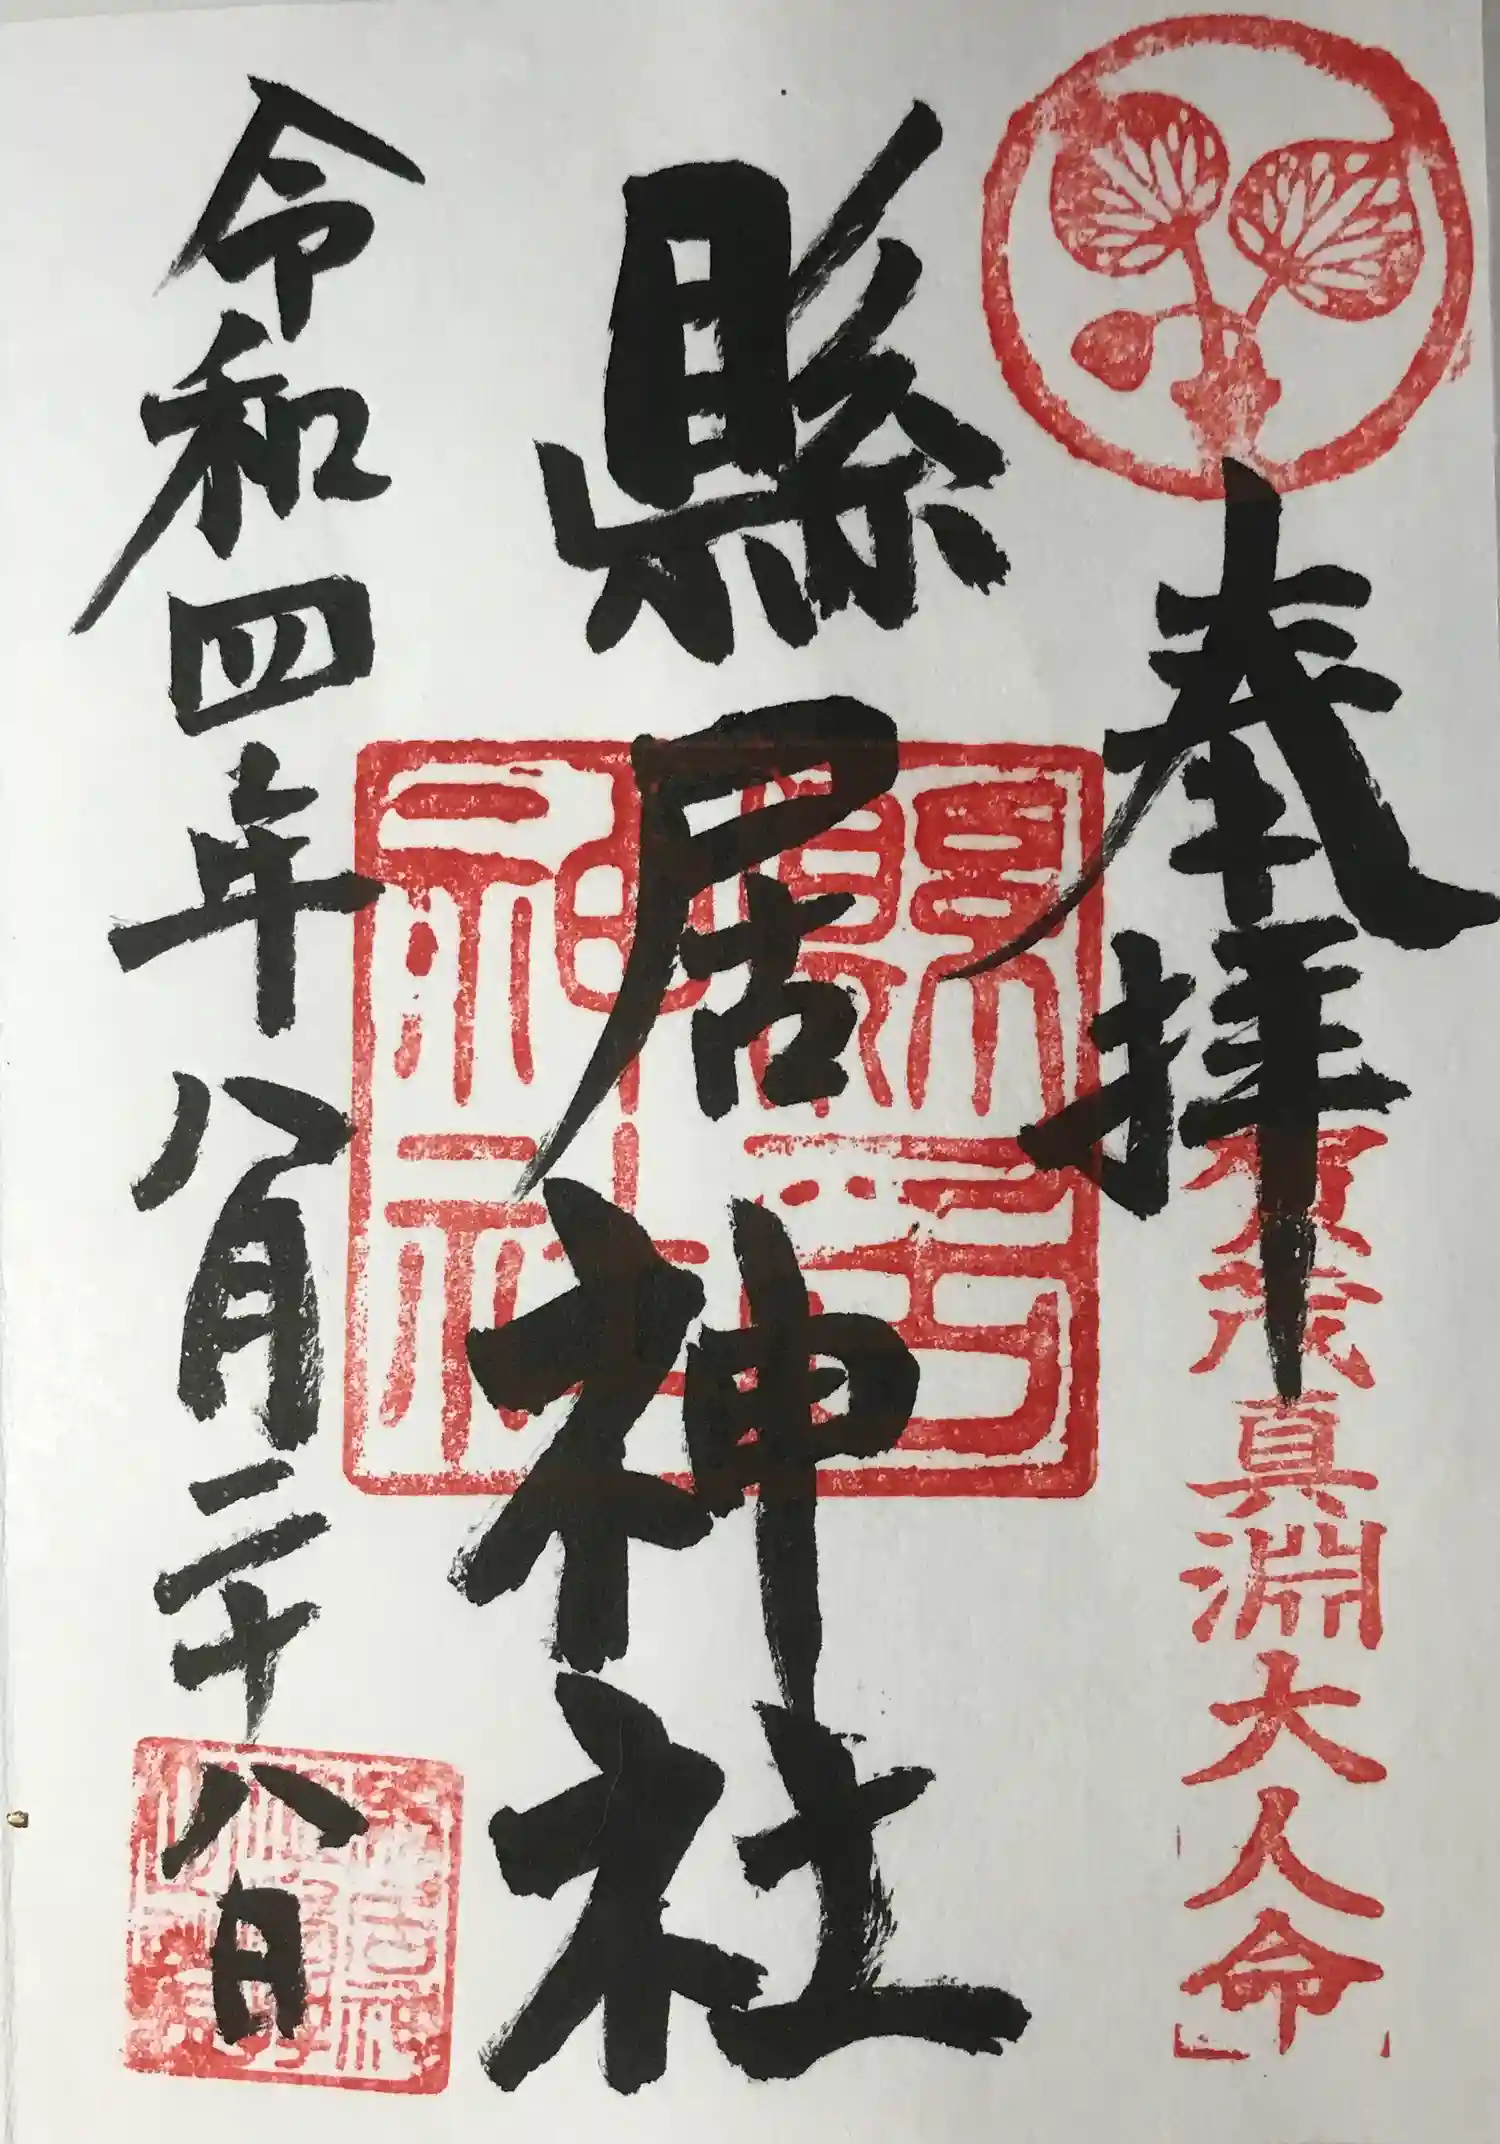 奉拝
賀茂真淵大人命
縣居神社
縣居神社
令和四年八月二十八日